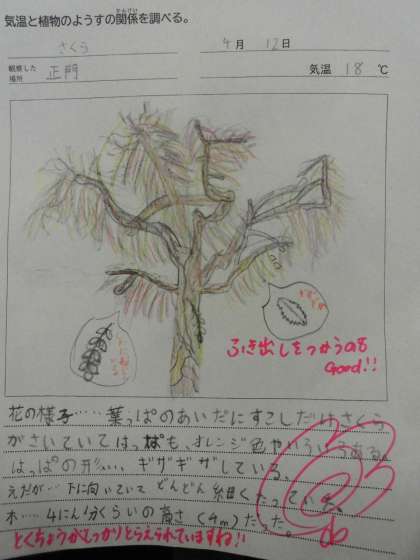 気温と植物のようすの関係を調べる。
かんけい
さくら
4月 12日
観察した場所 正門
気温 18 ℃
ふき出しをつかうのも
Good!!
花の様子……葉っぱのあいだにすこしだけさくら
がさいていてはっぱも、オレンジ色やいろいろある。
はっぱの形……ギザギザしている。
えだが…下に向いていてどんどん細くなっていた。
木……4にん分くらいの高さ(4m)だった。
とくちょうがしっかりとらえられていますね!!